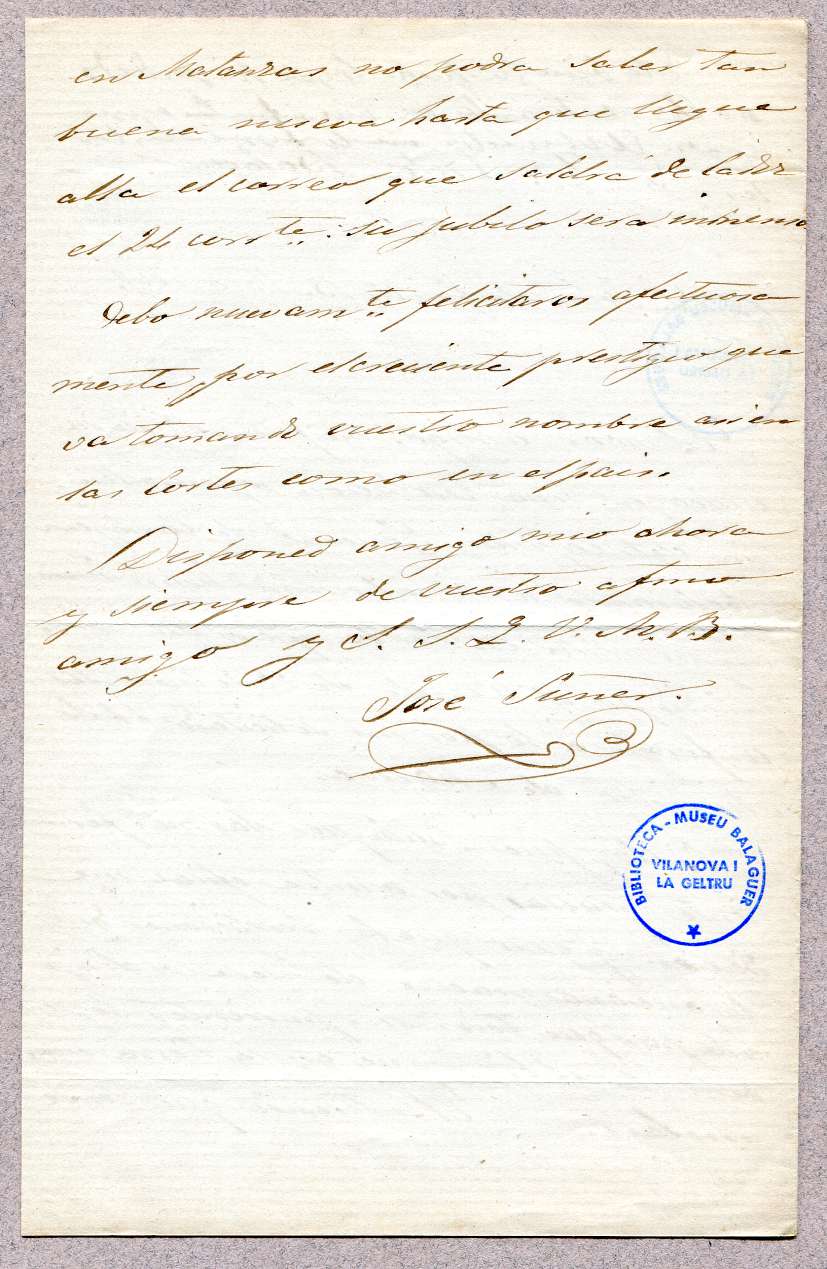 en Matanzas no podra saber tan
buena nueva hasta que llegue
alla el correo que saldrá de Cadiz
el 24 corrte. su jubilo sera inmenso
Debo nuevamte felicitaros afectuosa
mente, por el creciente prestigio que
va tomando vuestro nombre asi en
las Cortes como en el pais.
Disponed amigo mio ahora
y siempre de vuestro afmo
amigo y S. S. Q. V. M. B.
José Suñer.
BIBLIOTECA - MUSEU BALAGUER
VILANOVA I
LA GELTRU